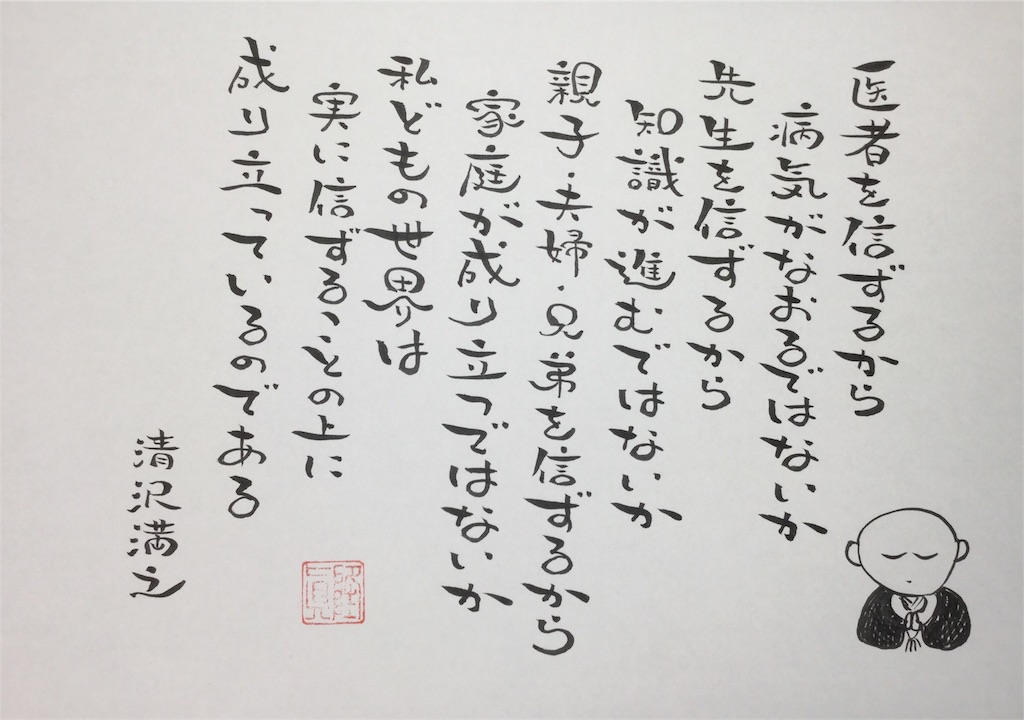 医者を信ずるから
病気がなおるではないか
先生を信ずるから
知識が進むではないか
親子・夫婦・兄弟を信ずるから
家庭が成り立つではないか
私どもの世界は
実に信ずることの上に
成り立っているのである
清沢満之